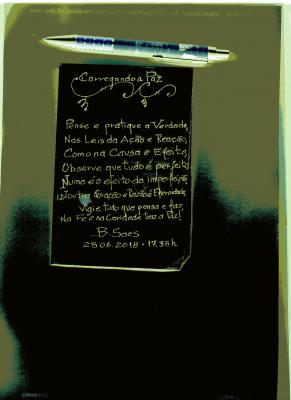 Carregando a Paz
Pense e pratique a Verdade,
Nas Leis da Ação e Reação,
Como na Causa e Efeito,
Observe que tudo é perfeito,
Numa é o efeito da imperfeição
Noutra Coração e Razão e Eternidade,
Vigie tudo que pensa e faz,
Na Fé e na Caridade traz a Paz!
B. Saes
25.06.2018 - 17,35h